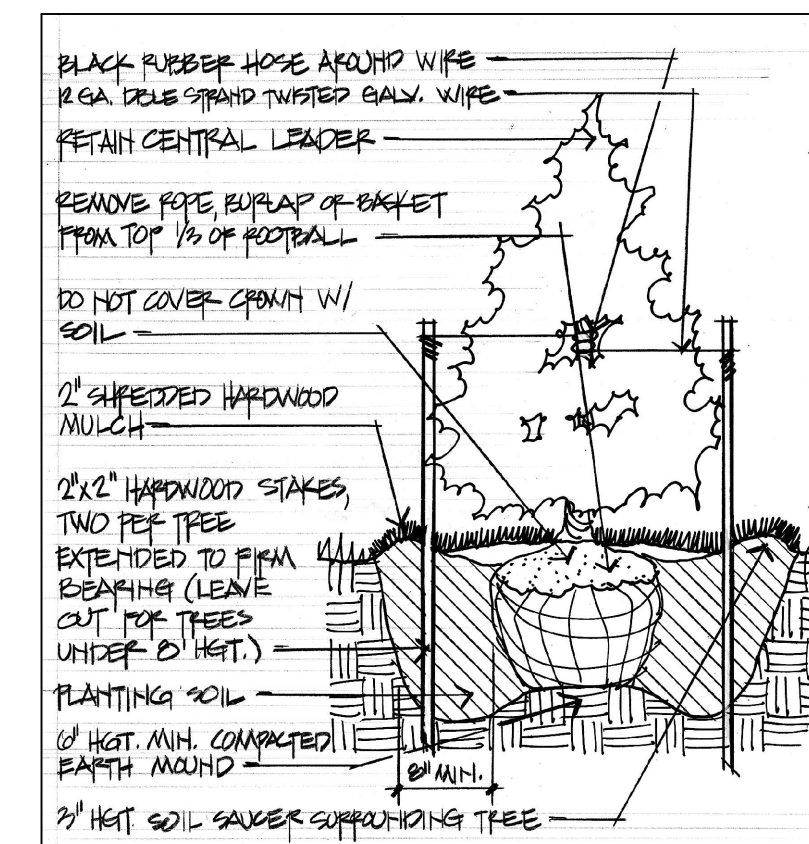 BLACK RUBBER HOSE AROUND WIRE
12 GA. DBLE STRAND TWISTED GALV. WIRE
RETAIN CENTRAL LEADER
REMOVE ROPE, BURLAP OR BASKET
FROM TOP 1/3 OF ROOTBALL
DO NOT COVER CROWN W/
SOIL
2" SHREDDED HARDWOOD
MULCH
2"x2" HARDWOOD STAKES,
TWO PER TREE
EXTENDED TO FIRM
BEARING (LEAVE
OUT FOR TREES
UNDER 8' HGT.)
PLANTING SOIL
6" HGT. MIN. COMPACTED
EARTH MOUND
8" MIN.
3" HGT. SOIL SAUCER SURROUNDING TREE